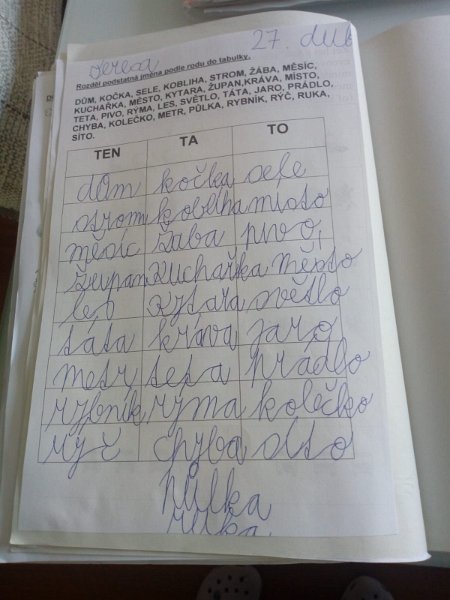 Tereza 27. dub
Rozděl podstatná jména podle rodu do tabulky.
DŮM, KOČKA, SELE, KOBLIHA, STROM, ŽÁBA, MĚSÍC,
KUCHAŘKA, MĚSTO, KYTARA, ŽUPAN,KRÁVA, MÍSTO,
TETA, PIVO, RÝMA, LES, SVĚTLO, TÁTA, JARO, PRÁDLO,
CHYBA, KOLEČKO, METR, PŮLKA, RYBNÍK, RÝČ, RUKA,
SÍTO.
TEN TA TO
dům kočka sele
strom kobliha místo
měsíc žába pivo
župan kuchařka město
les kytara světlo
táta kráva jaro
metr teta prádlo
rybník rýma kolečko
rýč chyba síto
půlka
ruka